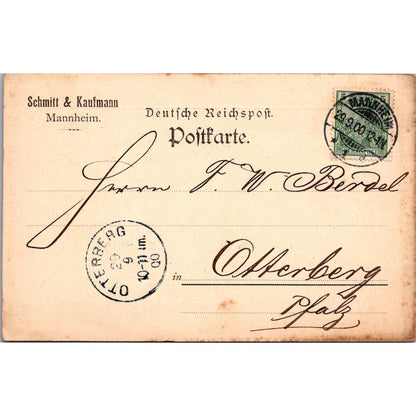 Schmitt & Kaufmann
Mannheim.
Deutsche Reichspost.
Postkarte.
MANNHEIM
29.9.00.12-1N
Herrn F. W. Berdel
OTTERBERG
9
10-11 m.
00
in
Otterberg
Pfalz